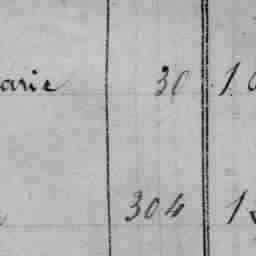 arie 30 1
304 1